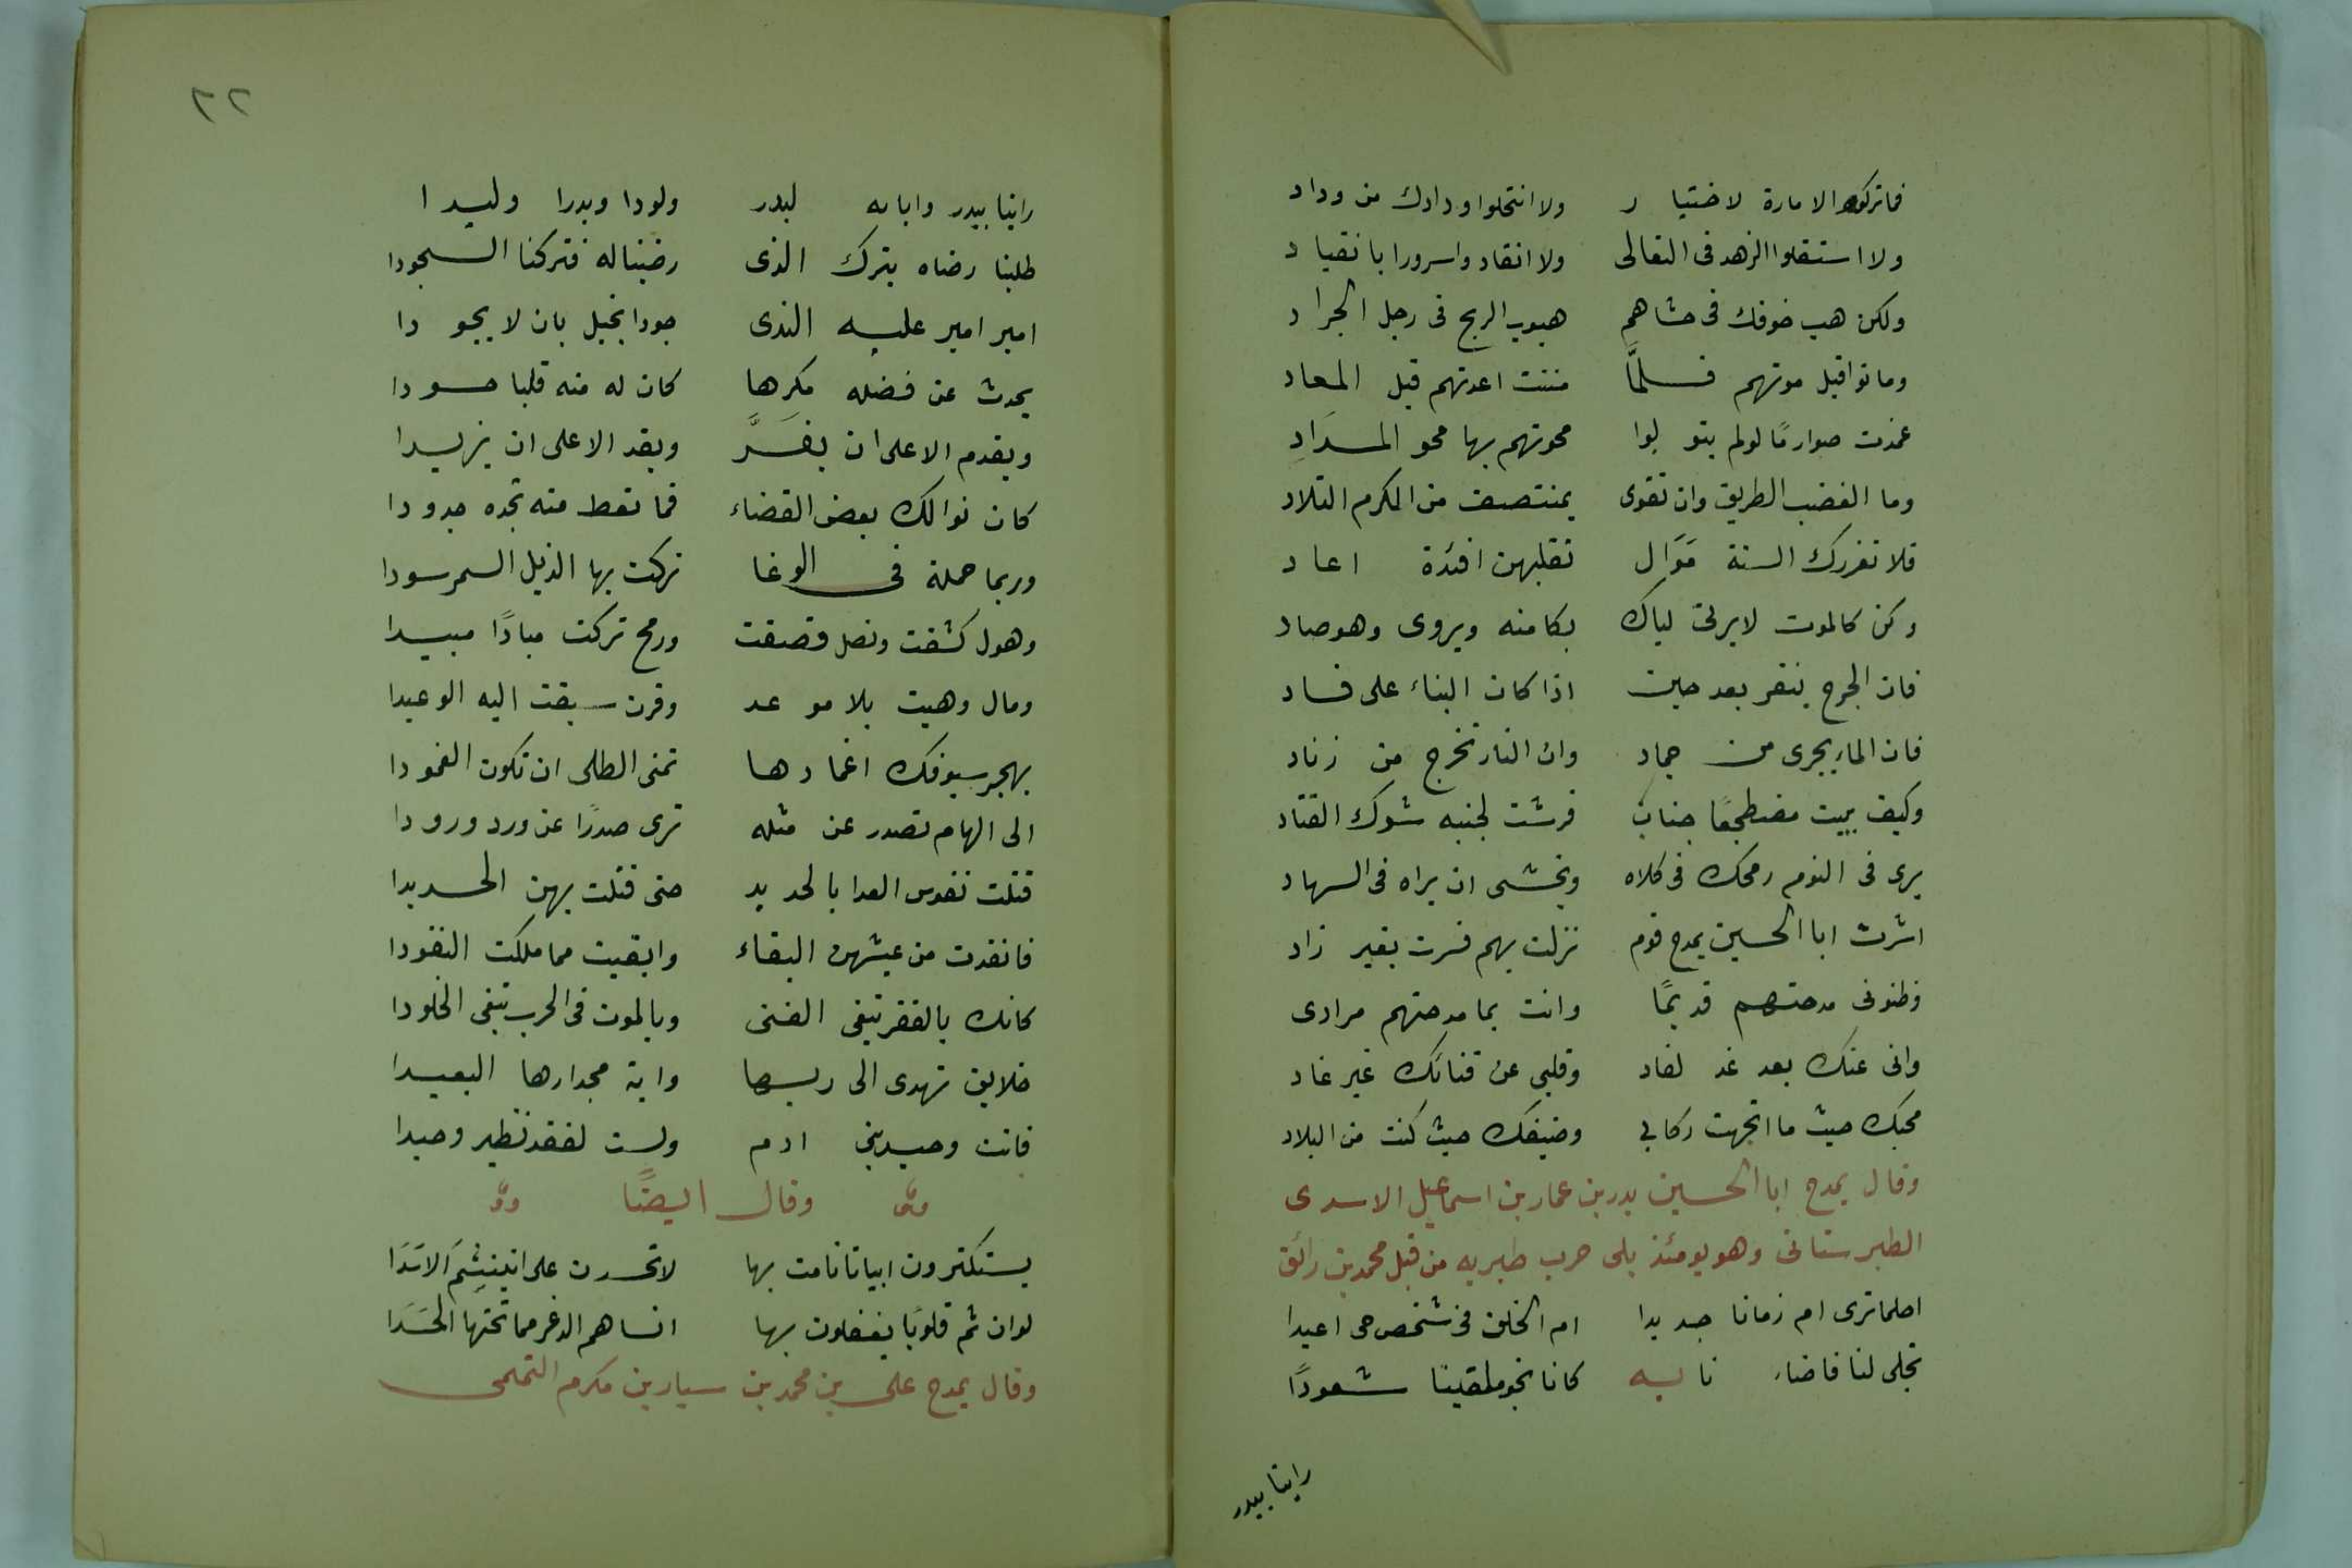 فماتركوا الامارة لاختيار ولا انتحلوا ودادك من وداد
ولا استقلوا الزهد فى التعالى ولا انقادوا سرورا بانقياد
ولكن هب خوفك فى حشاهم هبوب الريح فى رجل الجراد
وماتوا قبل موتهم فلمَّا مننت اعدتهم قبل المعاد
غمدت صوارمًا لولم يتوبوا محوتهم بها محو المدَادِ
وما الغضب الطريق وان تقوى بمنتصف من الكرم التلاد
فلا تغررك السنة مَوَال تقلبهن افئدة اعاد
وكن كالموت لايرثى لباك بكا منه ويروى وهو صاد
فان الجرح ينفر بعد حين اذا كان البناء على فساد
فان الماء يجرى من جماد وان النار تخرج من زناد
وكيف يبيت مضطجعًا جبان فرشت لجنبه شوك القتاد
يرى فى النوم رمحك فى كلاه ويخشى ان يراه فى السهاد
اشرت ابا الحسين بمدح قوم نزلت بهم فسرت بغير زاد
وظنونى مدحتهم قديمًا وانت بما مدحتهم مرادى
وانى عنك بعد غد لغاد وقلبى عن فنائك غير غاد
محبك حيث ما اتجهت ركابى وضيفك حيث كنت من البلاد
وقال يمدح ابا الحسين بدر بن عمار بن اسماعيل الاسدى
الطبرستانى وهو يومئذ يلى حرب طبريه من قبل محمد بن رائق
احلما ترى ام زمانا جديدا ام الخلق فى شخص حى اعيدا
تجلى لنا فاضاء نا به كانا نجوم لقينا سعودًا
راينا ببدر
٢٢
راينا ببدر وابايه لبدر ولودا وبدرا وليدا
طلبنا رضاه بترك الذى رضينا له فتركنا السجودا
امير امير عليه الندى جودا بخيل بان لا يجودا
يحدث عن فضله مكرها كان له منه قلبا حسودا
ويقدم الا على ان يفَرَّ ويقدر الا على ان يزيدا
كان نوالك بعض القضاء فما تعط منه تجده جدودا
وربما حملة فى الوغا تركت بها الذبل السمر سودا
وهول كشفت ونصل قصفت ورمح تركت مبادًا مبيدا
ومال وهبت بلا موعد وقرن سبقت اليه الوعيدا
بهجر سيوفك اغمادها تمنى الطلى ان تكون الغمودا
الى الهام تصدر عن مثله ترى صدرًا عن ورد ورودا
قتلت نفوس العدا بالحديد حتى قتلت بهن الحديدا
فانفدت من عيشهن البقاء وابقيت مما ملكت النفودا
كانك بالفقر تبغى الغنى وبالموت فى الحرب تبغى الخلودا
خلايق تهدى الى ربها واية مجد اراها البعيدا
فانت وحيد بنى ادم ولست لفقد نظير وحيدا
وقال ايضًا
يستكثرون ابياتا نامت بها لا تحسدن على ان ينئِمَ الاسَدَا
لوان ثم قلوبًا يعقلون بها انساهم الذعر مما تحتها الحَسَدا
وقال يمدح على بن محمد بن سيار بن مكرم التميمى